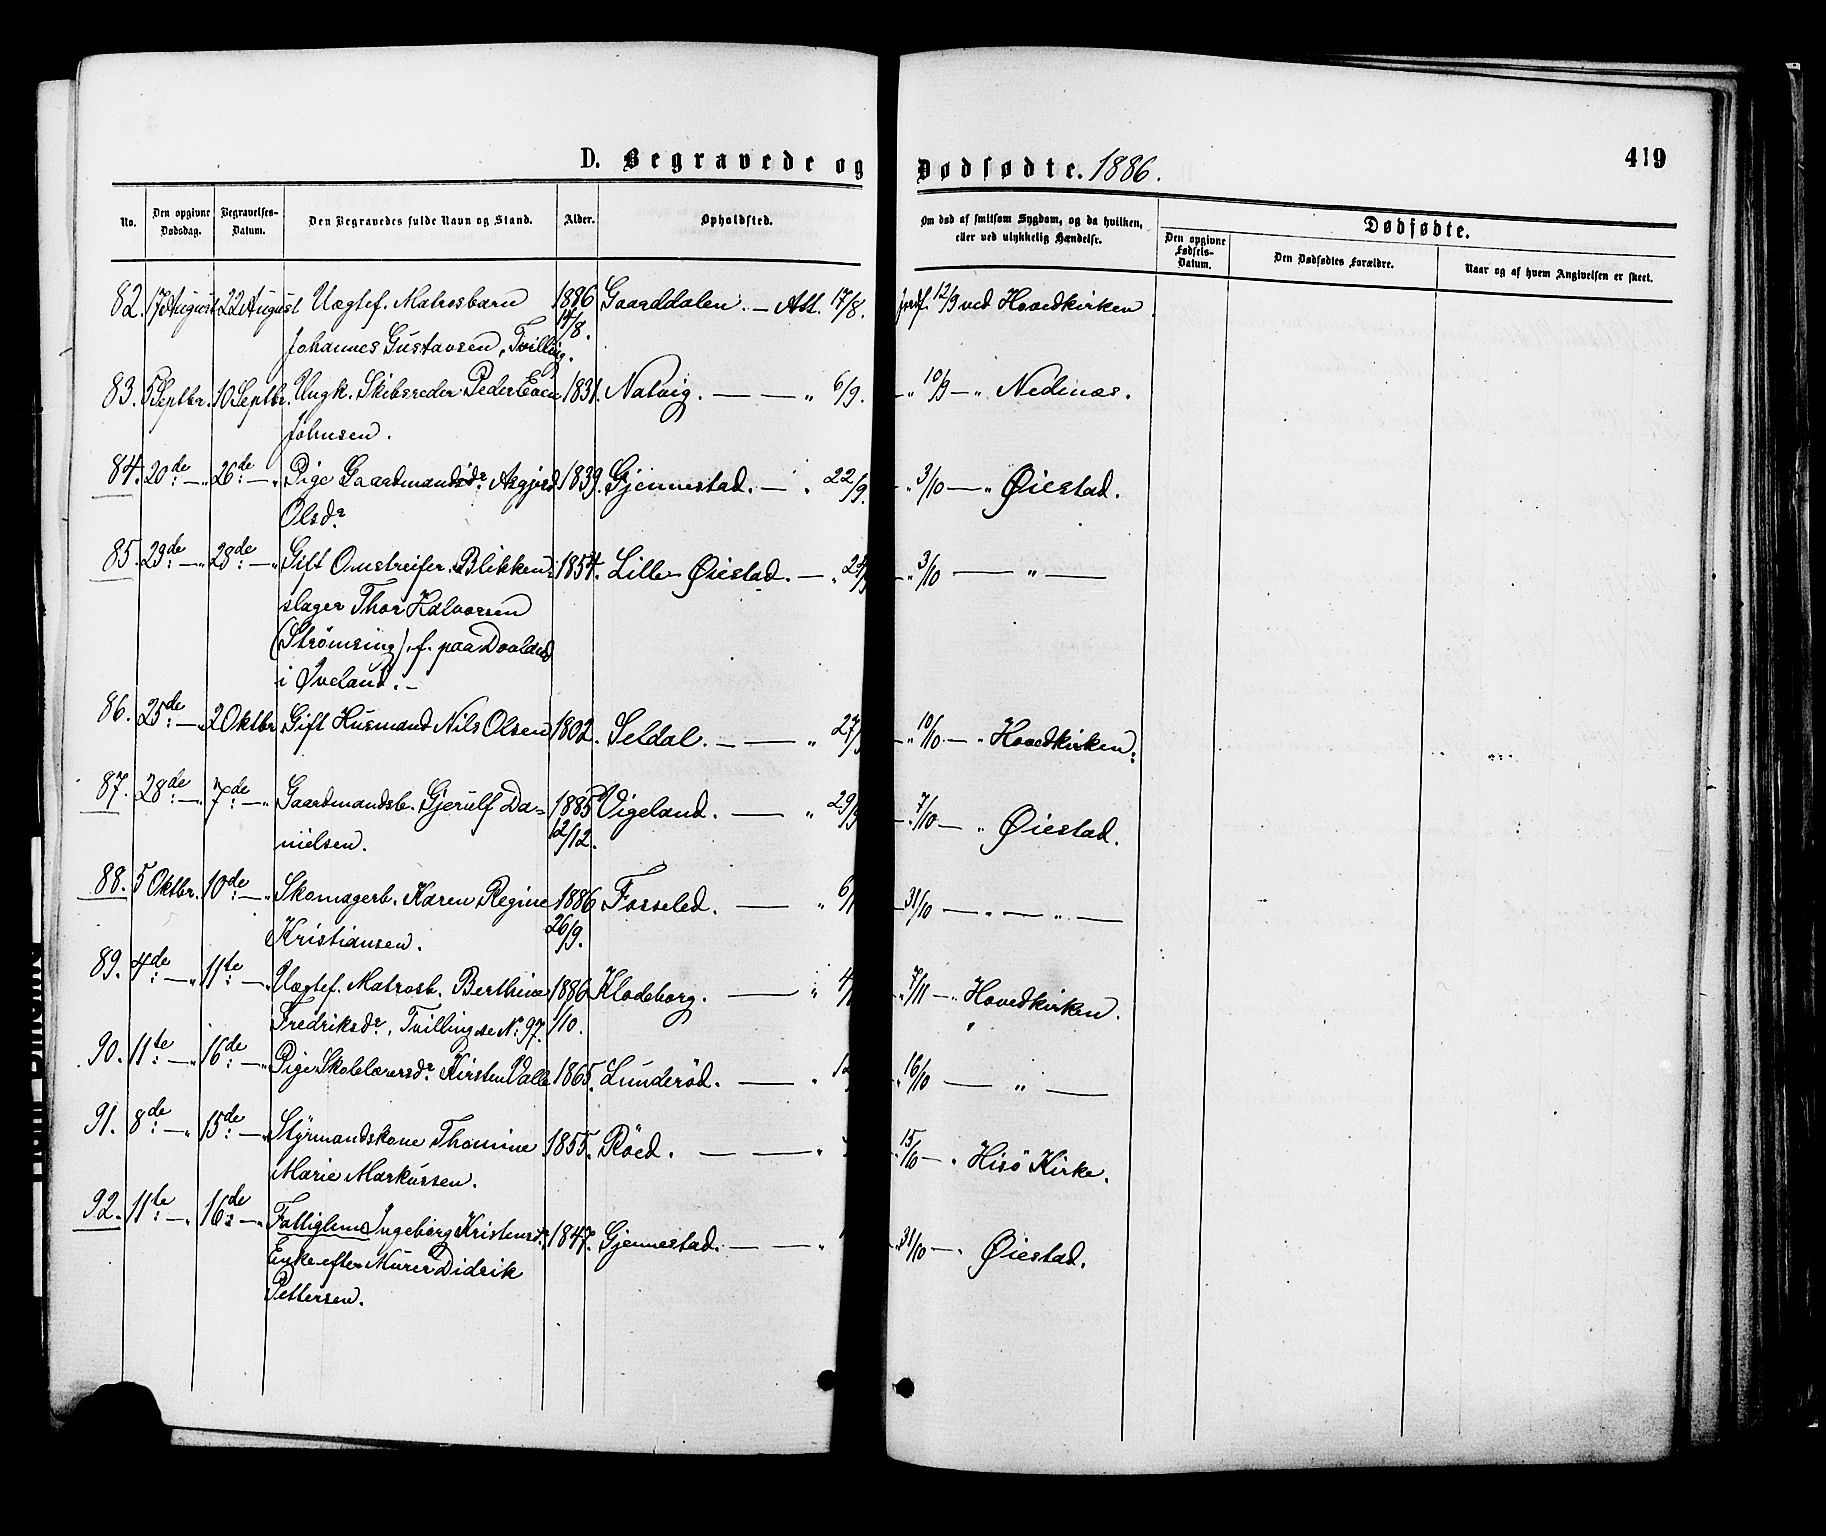 D. Begravede og Dødfødte. 1886. 419
No. Den opgivne Dødsdag. Begravelses-Datum. Den Begravedes fulde Navn og Stand. Alder. Opholdssted. Om død af smitsom Sygdom, og da hvilken, eller ved ulykkelig Hændelse. Dødfødte.
Den opgivne Fødsels-Datum. Den Dødfødtes Forældre. Naar og af hvem Angivelsen er skeet.
82. 17 August 22 August Uægtef. Matrosbarn 1886 Gaarddalen. — Att. 17/8. jordf. 12/9 ved Hovedkirken.
Johannes Gustavsen, Tvilling. 14/8.
83. 5 Septbr. 10 Septbr. Ungk. Skibsreder Peder Even 1831. Natvig. — — " 6/9. — " 10/9 — " Nedenæs.
Johnsen.
84. 20de — " 26de — " Pige Gaardmandsdr. Asgjerd 1839. Gjennestad. — " 22/9. — " 3/10 — " Øiestad.
Olsdr
85. 23de — " 28de — " Gift Omstreifer. Blikken- 1854. Lille Øiestad. — " — " 3/10 — " —
slager Thor Halvorsen
(Strømsing), f. paa
i Iveland. —
86. 25de — " 2 Oktbr Gift Husmand Nils Olsen 1802. Seldal. — — " 27/9 — " 10/10 — " Hovedkirken.
87. 28de — " 7de — " Gaardmandsb. Gjerulf Da= 1885 Vigeland. — " 29/9 — " 7/10 — " Øiestad.
nielsen. 12/12.
88. 5 Oktbr. 10de — " Skomagerb. Karen Regine 1886 Fosseled. — " 6/1 — 31/10 — " — " —
Kristiansen. 26/9.
89. 4de — " 11te — " Uægtef. Matrosb. Berthine 1886 Klodeborg. — " 4/ — " 7/11 — " Hovedkirken.
Fredriksdr, Tvilling, se No. 97. /10.
90. 11te — " 16de — " Pige Skolelærersdr. Kirsten Valle 1865. Lunderød. — " 12 — " 16/10 — " —
91. 8de — " 15de — " Styrmandskone Thomine 1855. Röed. — — " 15/10 — " Hisö Kirke.
Marie Markussen.
92. 11te — " 16de — " Fattiglem Ingeborg Kristensdr. 1847. Gjennestad. — — " 31/10 — " Øiestad.
Enke efter Murer Didrik
Pettersen.